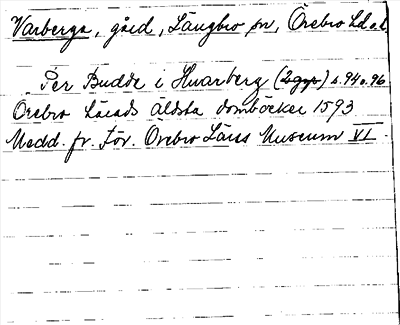 Varberga, gård, Längbro sn, Örebro Ld o. l.
Per Budde i Hvarberg (2 ggr) s. 94 o. 96
Örebro Läns Äldsta domböcker 1593
Medd. fr. För. Örebro Läns Museum VI.